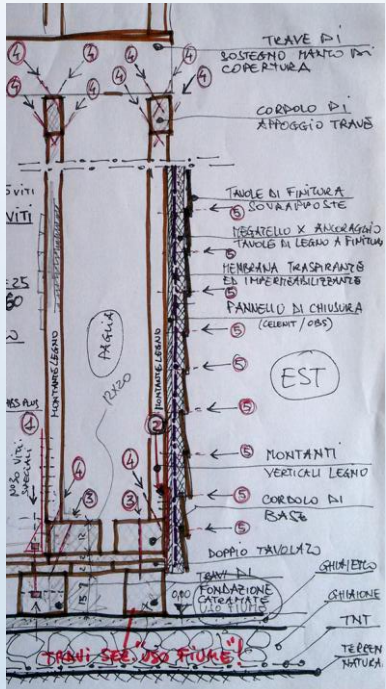 4
4
4
4
4
4
4
4
TRAVE DI
SOSTEGNO MANTO DI
COPERTURA
CORDOLO DI
APPOGGIO TRAVE
VITI
VITI
TAVOLE DI FINITURA
SOVRAPPOSTE
5
MEGATELLO X ANCORAGGIO
TAVOLE DI LEGNO A FINITURA
5
MEMBRANA TRASPIRANTE
ED IMPERMEABILIZZANTE
5
PANNELLO DI CHIUSURA
(CELENIT / OBS)
5
=25
PAGLIA
MONTANTE LEGNO
MONTANTE LEGNO
12X20
5
EST
5
PLUS
1
2
N°30 VITI
SPECIALI
5
MONTANTI
VERTICALI LEGNO
4
4
3
3
5
CORDOLO DI
BASE
5
12
DOPPIO TAVOLAZO
TRAVI DI
FONDAZIONE
CATRAMATE
USO FIUME
0,00
15
GHIAIETTO
GHIAIONE
TNT
TERREN
NATURA
TRAVI SEZ. "USO FIUME"!